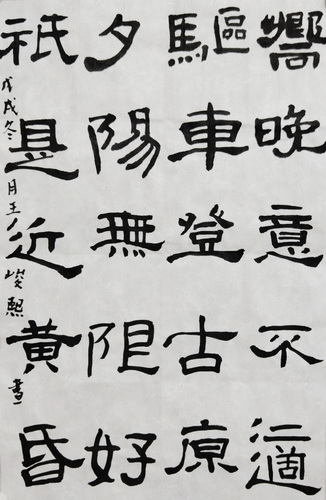 嚮晚意不適
驅車登古原
夕陽無限好
祇是近黃昏
戊戌冬月王峻熙書